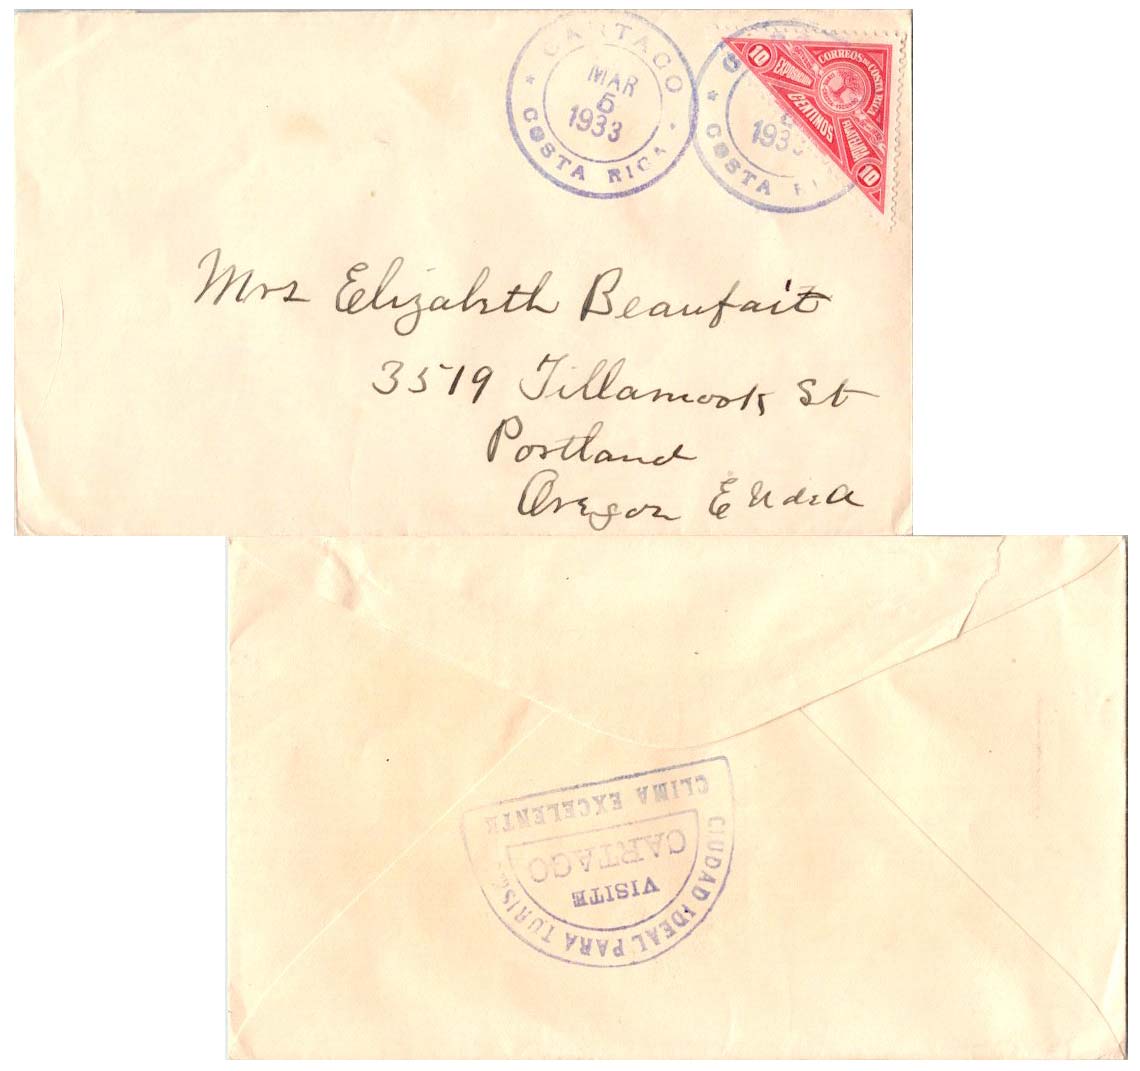 CARTAGO
MAR
5
1933
* COSTA RICA *
193
* COSTA RI
10
EXPOSICION
CORREOS DE COSTA RICA
CENTIMOS
FILATELICA
10
Mrs Elizabeth Beaufait
3519 Tillamook St
Portland
Oregon E U de A
CIUDAD IDEAL PARA TURISMO
VISITE
CARTAGO
CLIMA EXCELENTE